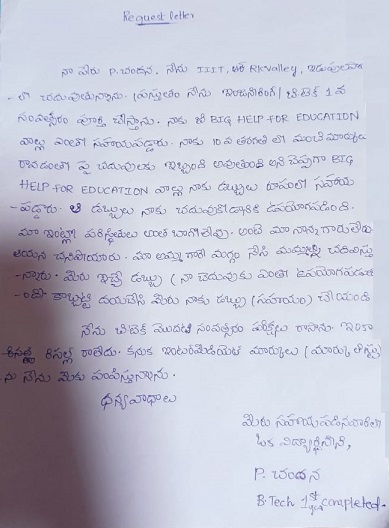 Request letter
నా పేరు P.చందన. నేను IIIT, RK Valley, ఇడుపులపా
- లో చదువుతున్నాను. ప్రస్తుతం నేను ఇంజనీరింగ్ బి.టెక్ 1 వ
సంవత్సరం పూర్తి చేస్తాను. నాకు ఈ BIG HELP FOR EDUCATION
వాళ్ళు ఎంతో సహాయపడ్డారు. నాకు 10 వ తరగతి లో మంచి మార్కులు
రావడంతో పై చదువులకు ఇబ్బంది అవుతుంది అని చెప్పగా BIG
HELP FOR EDUCATION వాళ్ళు నాకు డబ్బులు రూపంలో సహాయ
- పడ్డారు. ఆ డబ్బులు నాకు చదువుకోడానికి ఉపయోగపడింది.
మా ఇంట్లో పరిస్థితులు అంత బాగోలేవు. అంటే మా నాన్నగారు లేరు
ఆయన చనిపోయారు. మా అమ్మ గారే మగ్గం నేసి మమ్మల్ని చదివిస్తు
- న్నారు. మీరు ఇచ్చే డబ్బు నా చదువుకు ఎంతో ఉపయోగపడుతు
-ంది కాబట్టి దయచేసి మీరు నాకు డబ్బు (సహాయం) చేయండి
నేను బి.టెక్ మొదటి సంవత్సరం పరీక్షలు రాసాను. ఇంకా
రిసల్ట్ రాలేదు. కనుక ఇంటర్మీడియట్ మార్కులు (మార్కు లిస్టు)
ను నేను మీకు పంపిస్తున్నాను.
ధన్యవాదాలు
మీరు సహాయపడినవారిలో
ఒక విద్యార్థినిని,
P. చందన
B.Tech 1st year completed.